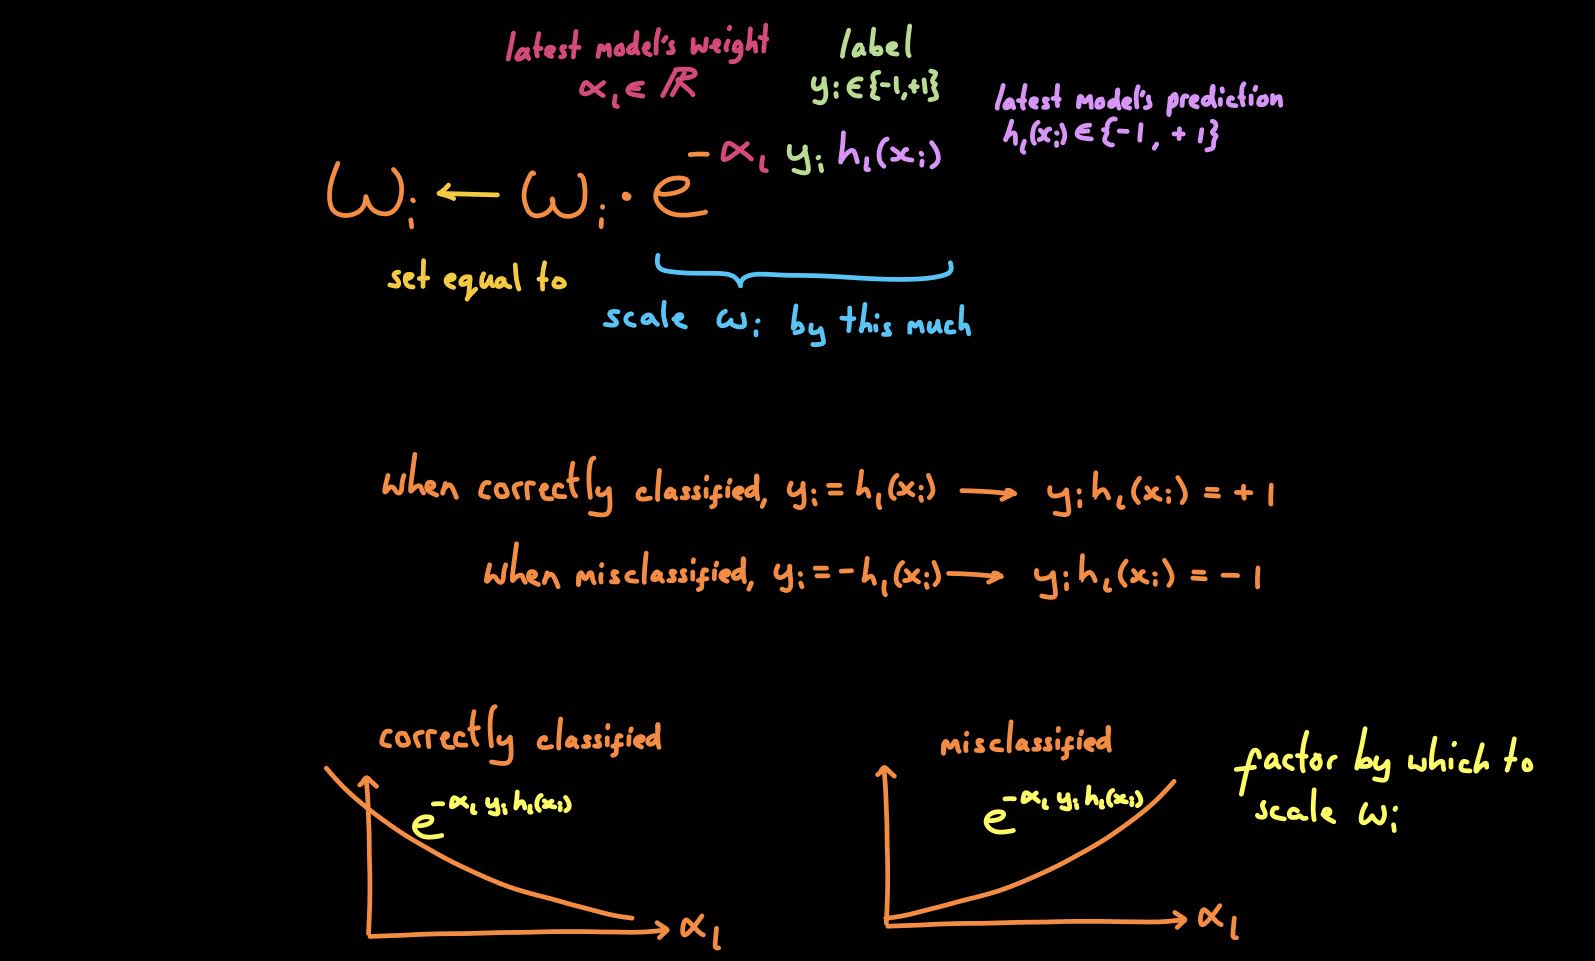 latest model's weight
αₗ ∈ ℝ
label
yᵢ ∈ {-1,+1}
latest model's prediction
hₗ(xᵢ) ∈ {-1, +1}
ωᵢ ← ωᵢ · e^(-αₗ yᵢ hₗ(xᵢ))
set equal to
scale ωᵢ by this much
when correctly classified, yᵢ = hₗ(xᵢ) → yᵢ hₗ(xᵢ) = +1
when misclassified, yᵢ = -hₗ(xᵢ) → yᵢ hₗ(xᵢ) = -1
correctly classified
e^(-αₗ yᵢ hₗ(xᵢ))
αₗ
misclassified
e^(-αₗ yᵢ hₗ(xᵢ))
αₗ
factor by which to
scale ωᵢ